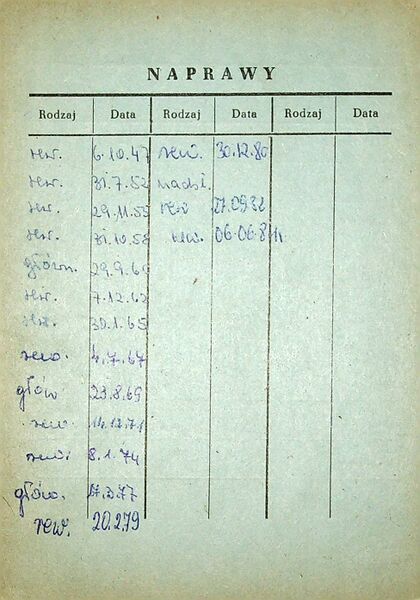 NAPRAWY
Rodzaj Data Rodzaj Data Rodzaj Data
rew. 6.10.47 rew. 30.12.80
rew. 31.7.52 nadzl.
rew. 29.11.55 rew 27.09.82
rew. 31.10.58 rew. 06.06.84
główn. 29.9.60
rew. 7.12.62
rew. 30.1.65
rewo. 4.7.67
głów 23.8.69
rewo. 14.12.71
rewi 8.1.74
główn. 17.3.77
rew. 20.2.79